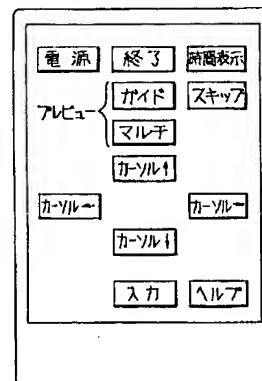 電源 終了 時間表示
プレビュー ガイド スキップ
マルチ
カーソル↑
カーソル← カーソル→
カーソル↓
入力 ヘルプ